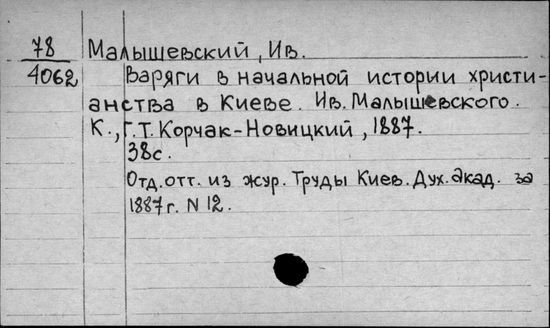 78 Малышевский, Ив.
4062 Варяги в начальной истории христи-
анства в Киеве. Ив. Малышевского.
К., Г.Т. Корчак-Новицкий, 1887.
38с.
Отд. отт. из жур. Труды Киев. Дух. Акад. за
1887 г. N 12.